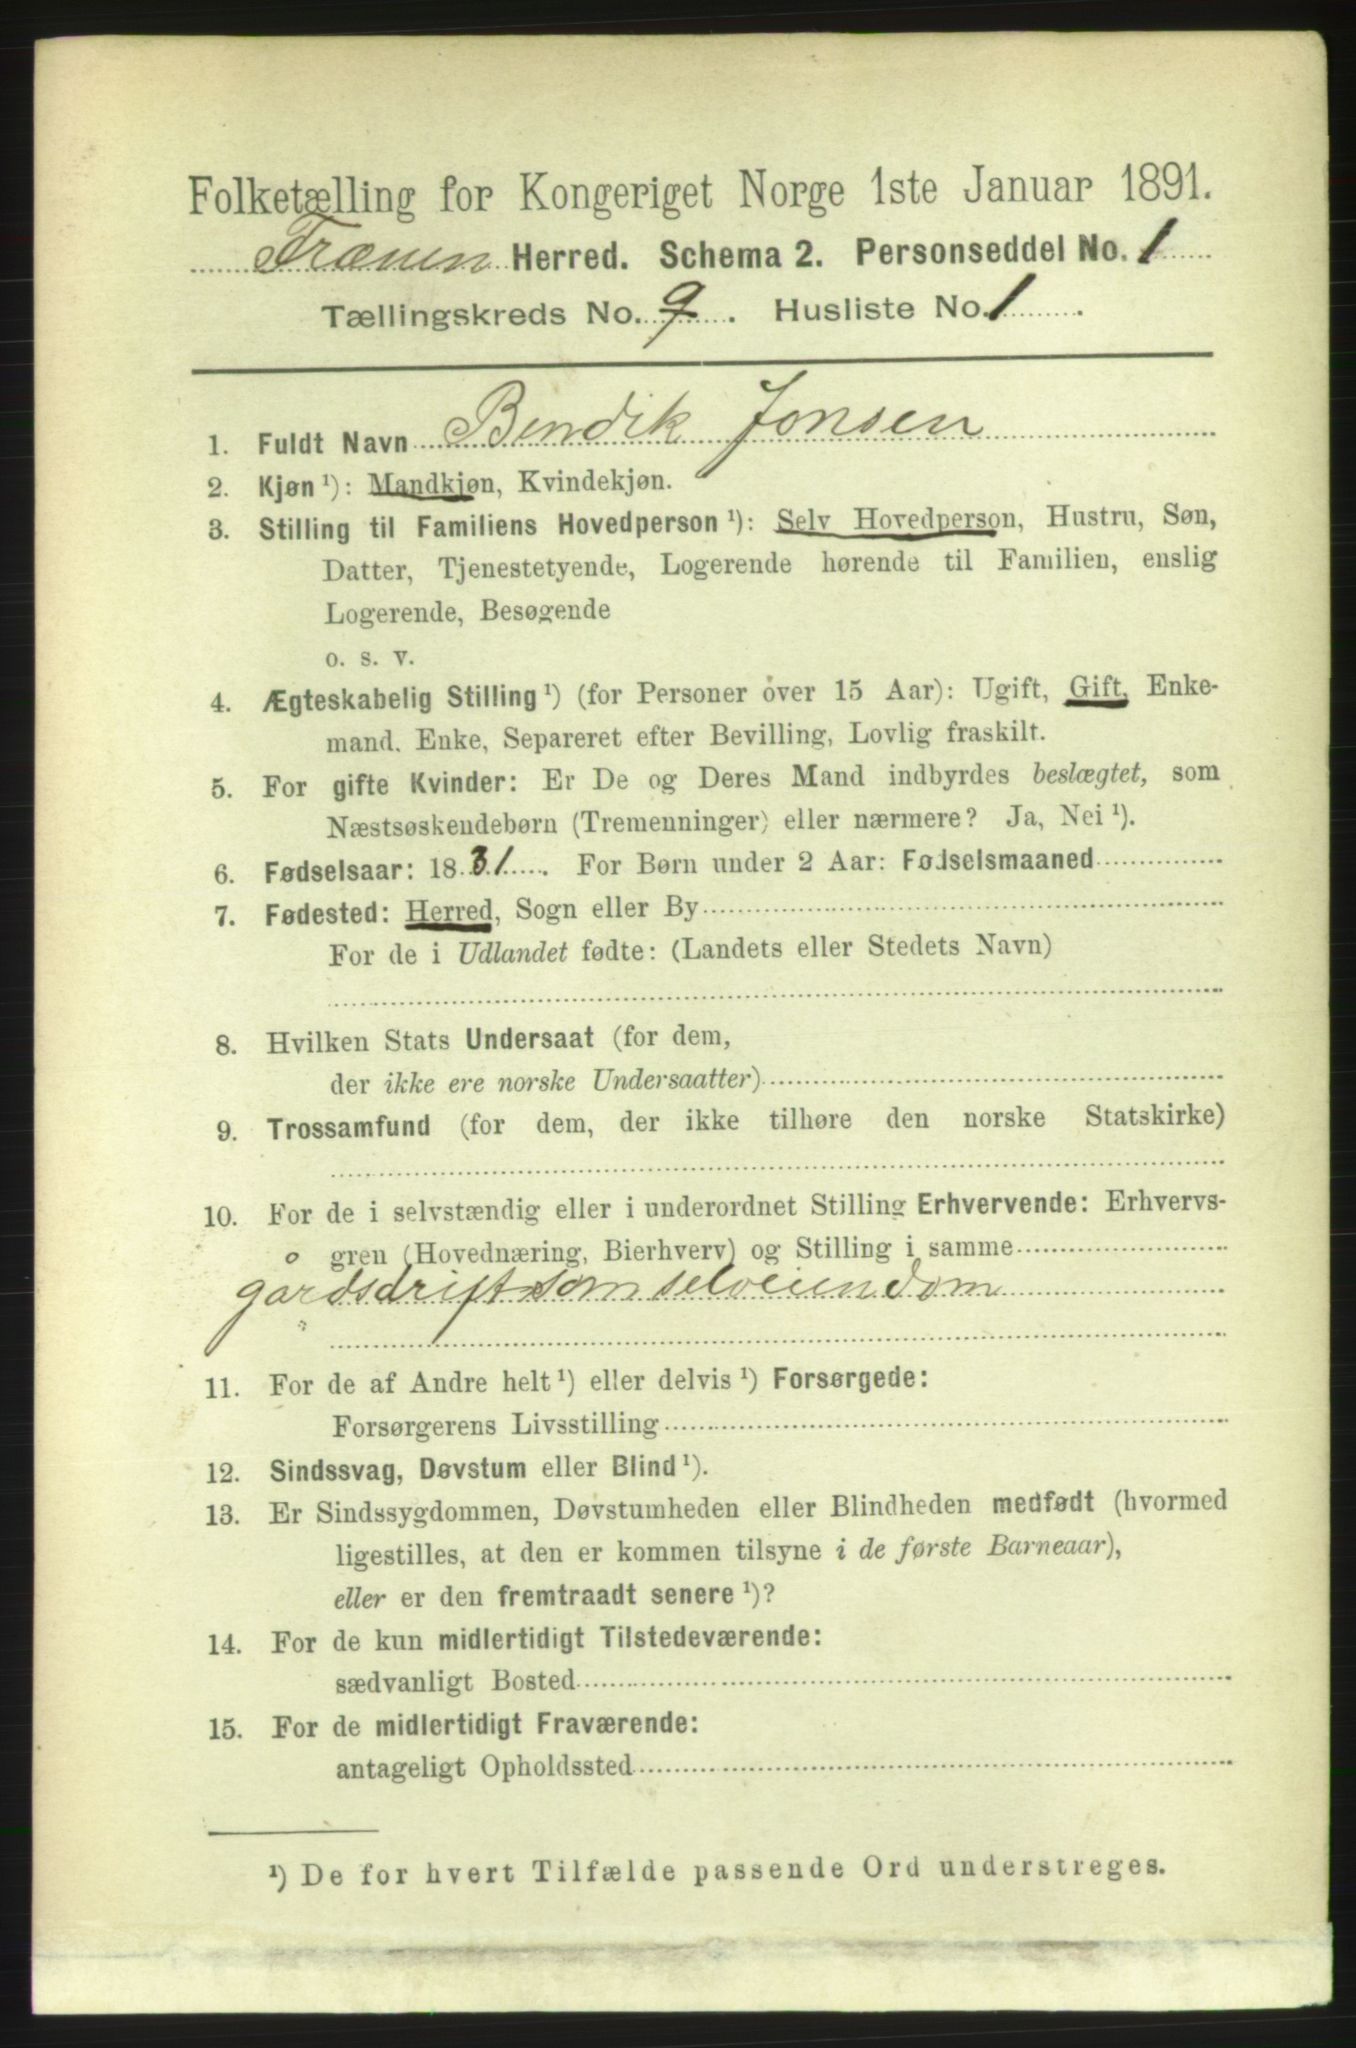 Folketælling for Kongeriget Norge 1ste Januar 1891.
Frænen Herred. Schema 2. Personseddel No. 1
Tællingskreds No. 9. Husliste No. 1.
1. Fuldt Navn Bendik Jonsen
2. Kjøn ¹): Mandkjøn, Kvindekjøn.
3. Stilling til Familiens Hovedperson ¹): Selv Hovedperson, Hustru, Søn,
Datter, Tjenestetyende, Logerende hørende til Familien, enslig
Logerende, Besøgende
o. s. v.
4. Ægteskabelig Stilling ¹) (for Personer over 15 Aar): Ugift, Gift, Enke-
mand, Enke, Separeret efter Bevilling, Lovlig fraskilt.
5. For gifte Kvinder: Er De og Deres Mand indbyrdes beslægtet, som
Næstsøskendebørn (Tremenninger) eller nærmere? Ja, Nei ¹).
6. Fødselsaar: 1831. For Børn under 2 Aar: Fødselsmaaned
7. Fødested: Herred, Sogn eller By
For de i Udlandet fødte: (Landets eller Stedets Navn)
8. Hvilken Stats Undersaat (for dem,
der ikke ere norske Undersaatter)
9. Trossamfund (for dem, der ikke tilhøre den norske Statskirke)
10. For de i selvstændig eller i underordnet Stilling Erhvervende: Erhvervs-
gren (Hovednæring, Bierhverv) og Stilling i samme
gårdsdrift som selveiendom
11. For de af Andre helt ¹) eller delvis ¹) Forsørgede:
Forsørgerens Livsstilling
12. Sindssvag, Døvstum eller Blind ¹).
13. Er Sindssygdommen, Døvstumheden eller Blindheden medfødt (hvormed
ligestilles, at den er kommen tilsyne i de første Barneaar),
eller er den fremtraadt senere ¹)?
14. For de kun midlertidigt Tilstedeværende:
sædvanligt Bosted
15. For de midlertidigt Fraværende:
antageligt Opholdssted
¹) De for hvert Tilfælde passende Ord understreges.